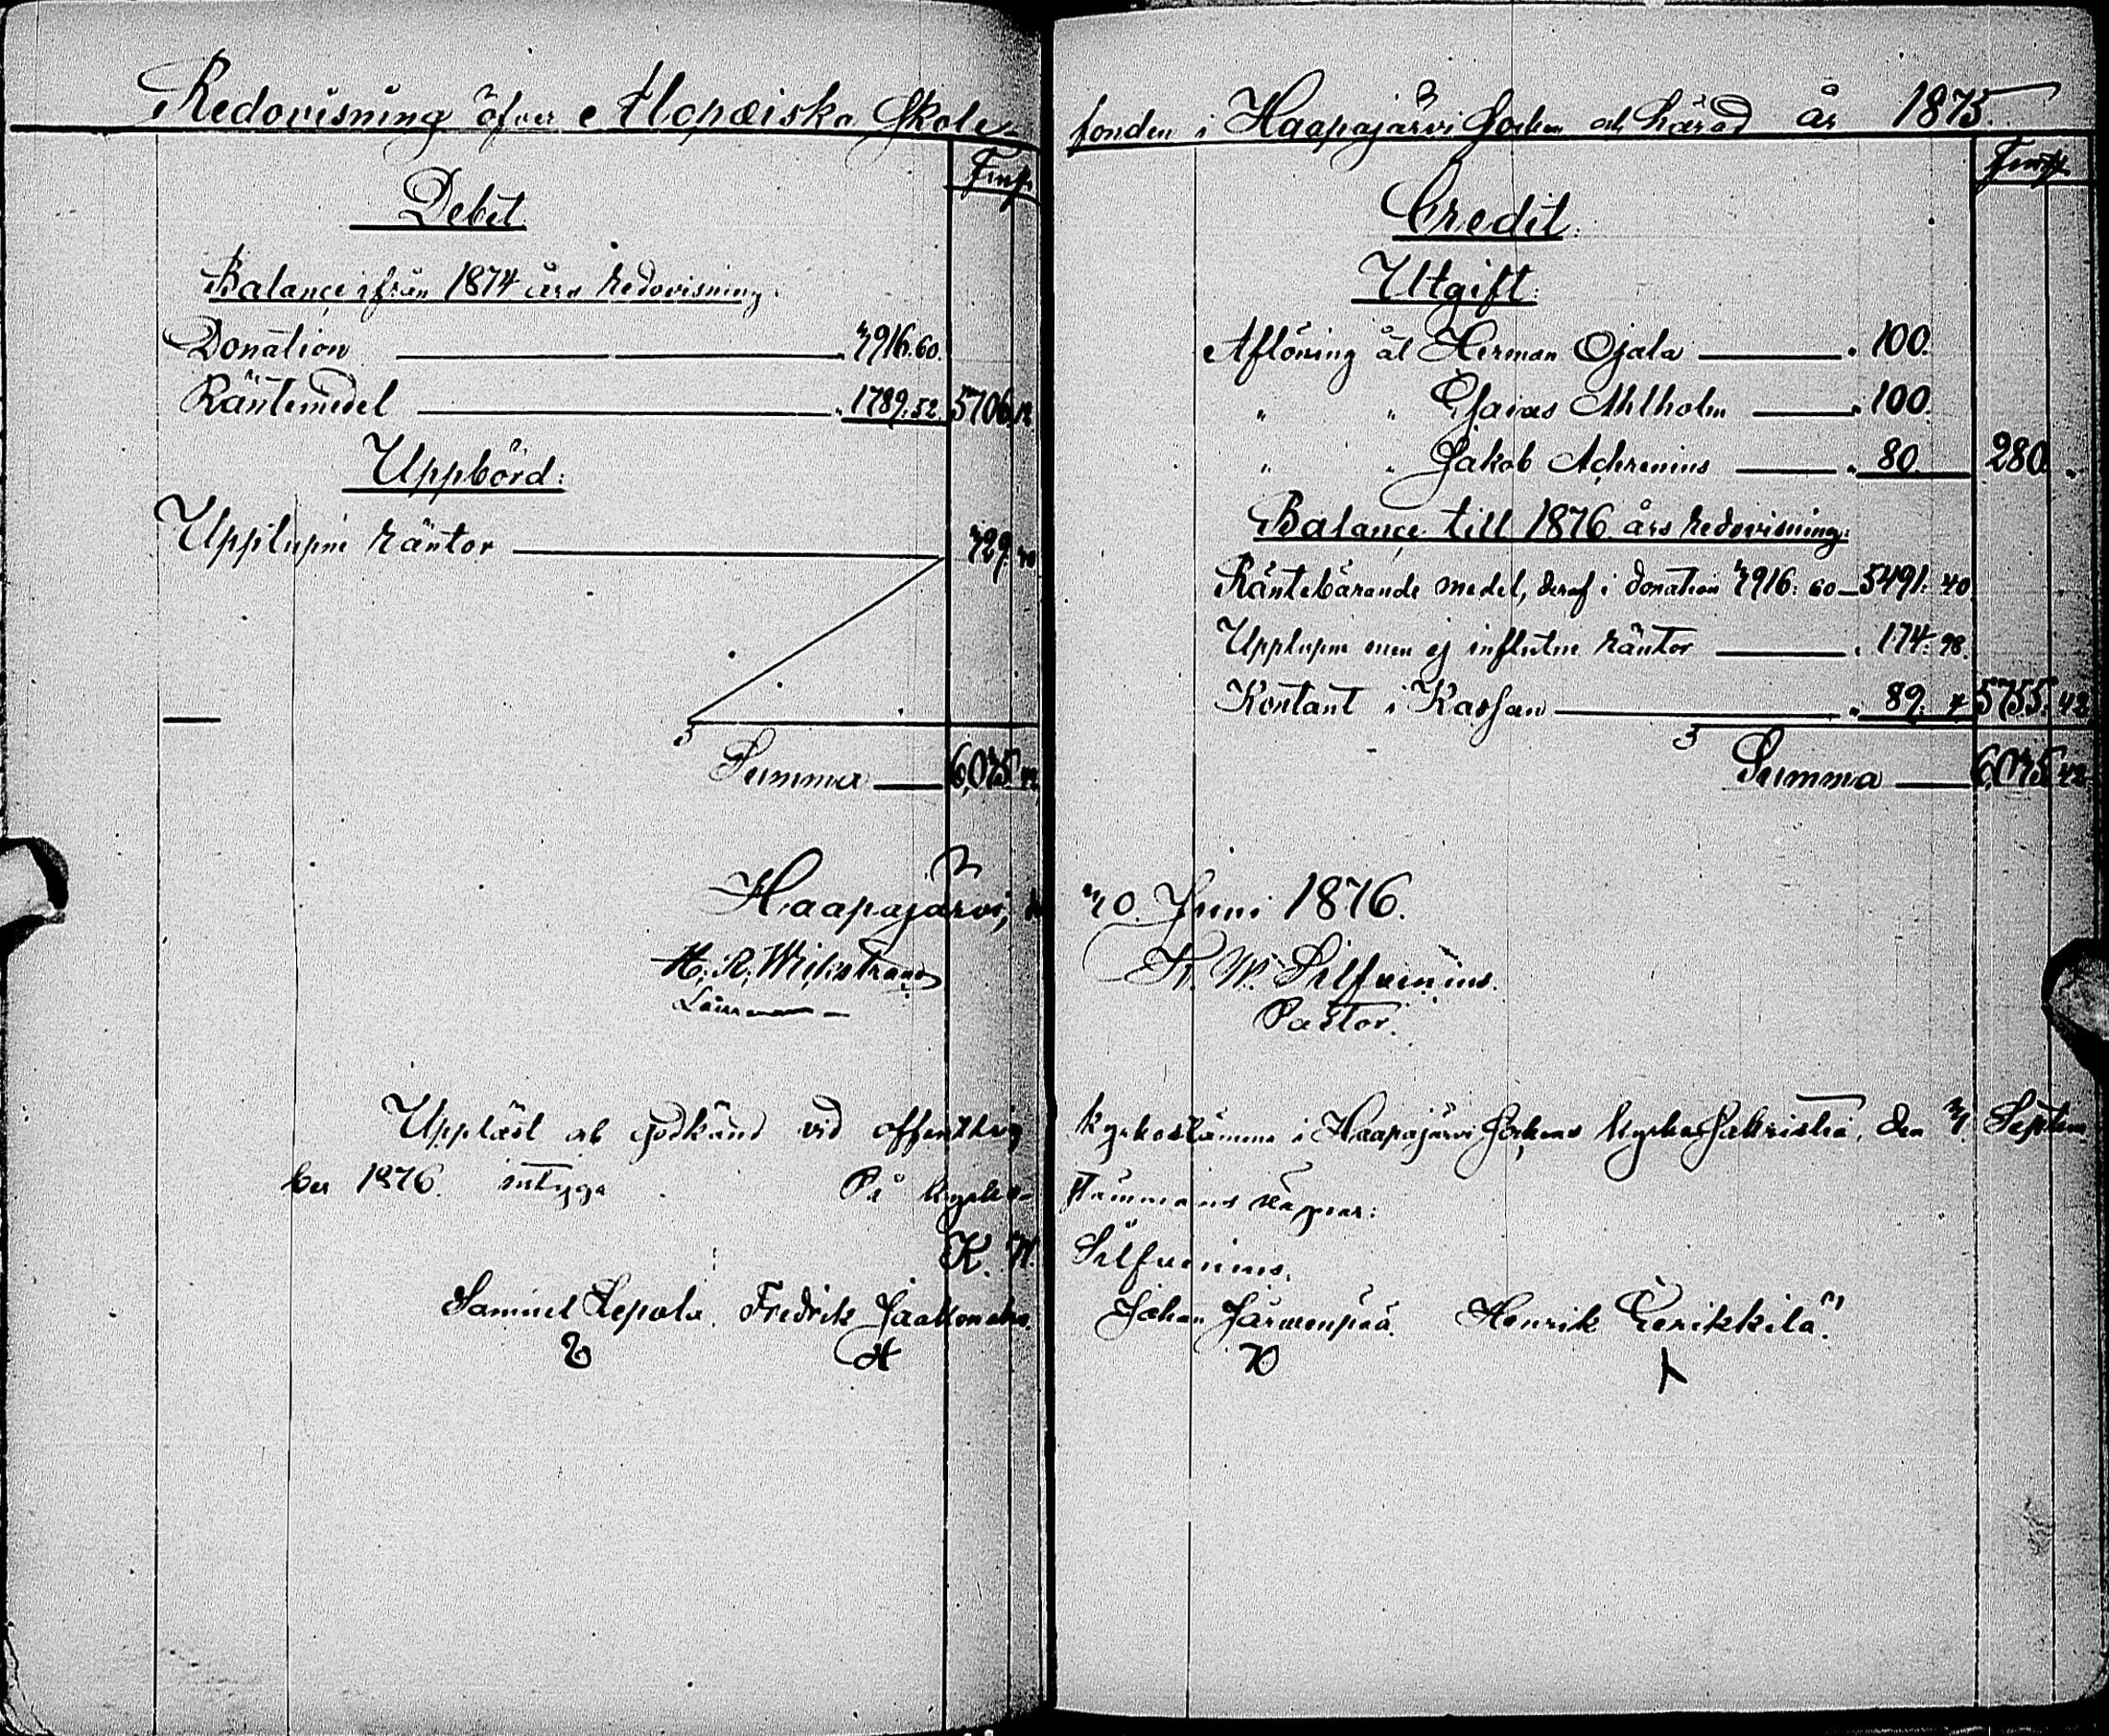 Redovisning öfver Alopæiska Skole-
Fmk p.
Debet.
Balance ifrån 1874 års Redovisning.
Donation 3916.60.
Räntemedel 1789.52. 5706.12.
Uppbörd:
Upplupne räntor 329.30
Summa 6,035.42
Haapajärvi, d.
H. R. Wickstrand
Länsman
Uppläst och godkänd vid offentlig
ber 1876. intyga På kyrko-
K. W.
Samuel Lepola. Fredrik Jaakonaho.
fonden i Haapajärvi Socken och härad år 1875.
Fmk p.
Credit.
Utgift:
Aflöning åt Herman Ojala 100.
" " Esaias Ahlholm 100.
" " Jakob Achrenius 80. 280. "
Balance till 1876 års Redovisning:
Räntebärande medel, deraf i donation 3916:60 — 5491:40
Upplupne men ej influtne räntor 174:98.
Kontant i Kassan 89: 4 5755:42
Summa 6,035.42
30. Juni 1876.
K. W. Silfvenius.
Pastor.
kyrkostämma i Haapajärvi Sockens kyrkas Sakristia, den 3. Septem
stämmans vägnar:
Silfvenius.
Johan Järvenpää. Henrik Eerikkilä.